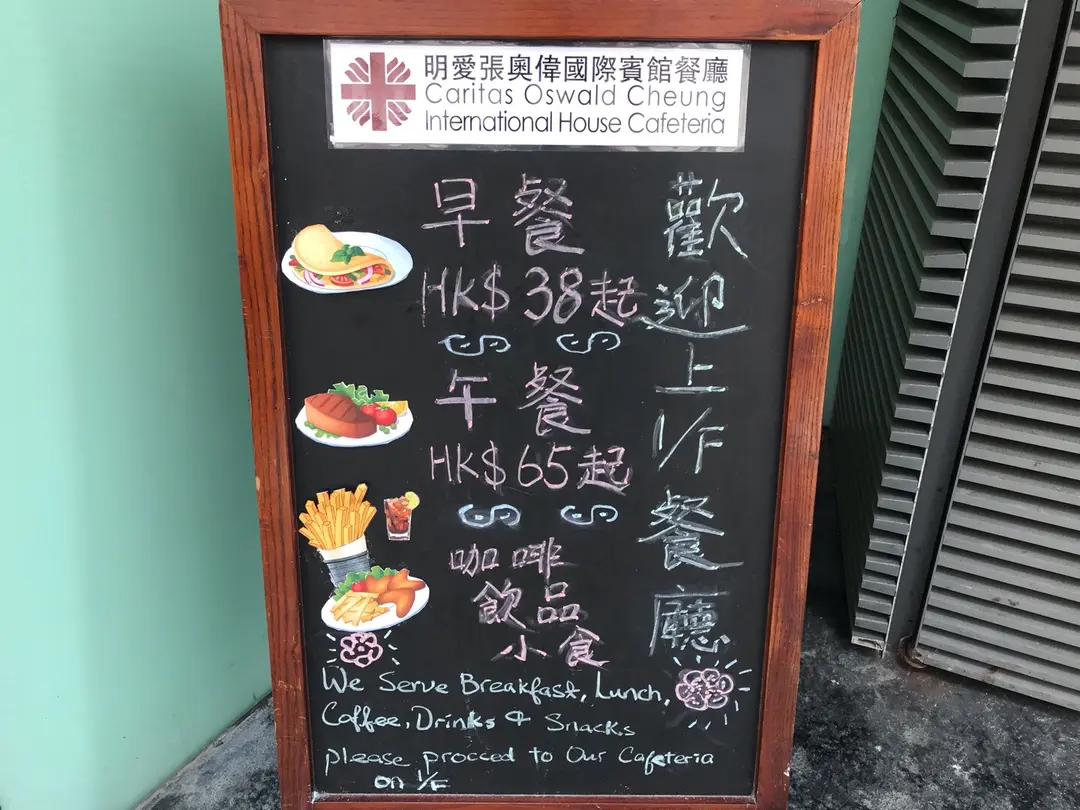 明愛張奧偉國際賓館餐廳
Caritas Oswald Cheung
International House Cafeteria
早餐
HK$ 38起
午餐
HK$ 65起
咖啡
飲品
小食
歡迎上1/F餐廳
We Serve Breakfast, Lunch,
Coffee, Drinks & Snacks
please procced to Our Cafeteria
on 1/F